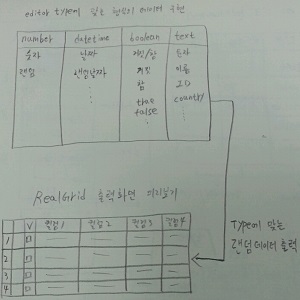 editor type에 맞는 형식의 데이터 구현
number datetime boolean text
숫자 날짜 거짓/참 문자
랜덤 랜덤날짜 거짓 이름
참 ID
true country
false
RealGrid 출력화면 미리보기
V 컬럼1 컬럼2 컬럼3 컬럼4
1
2
3
4
Type에 맞는
랜덤데이터 출력